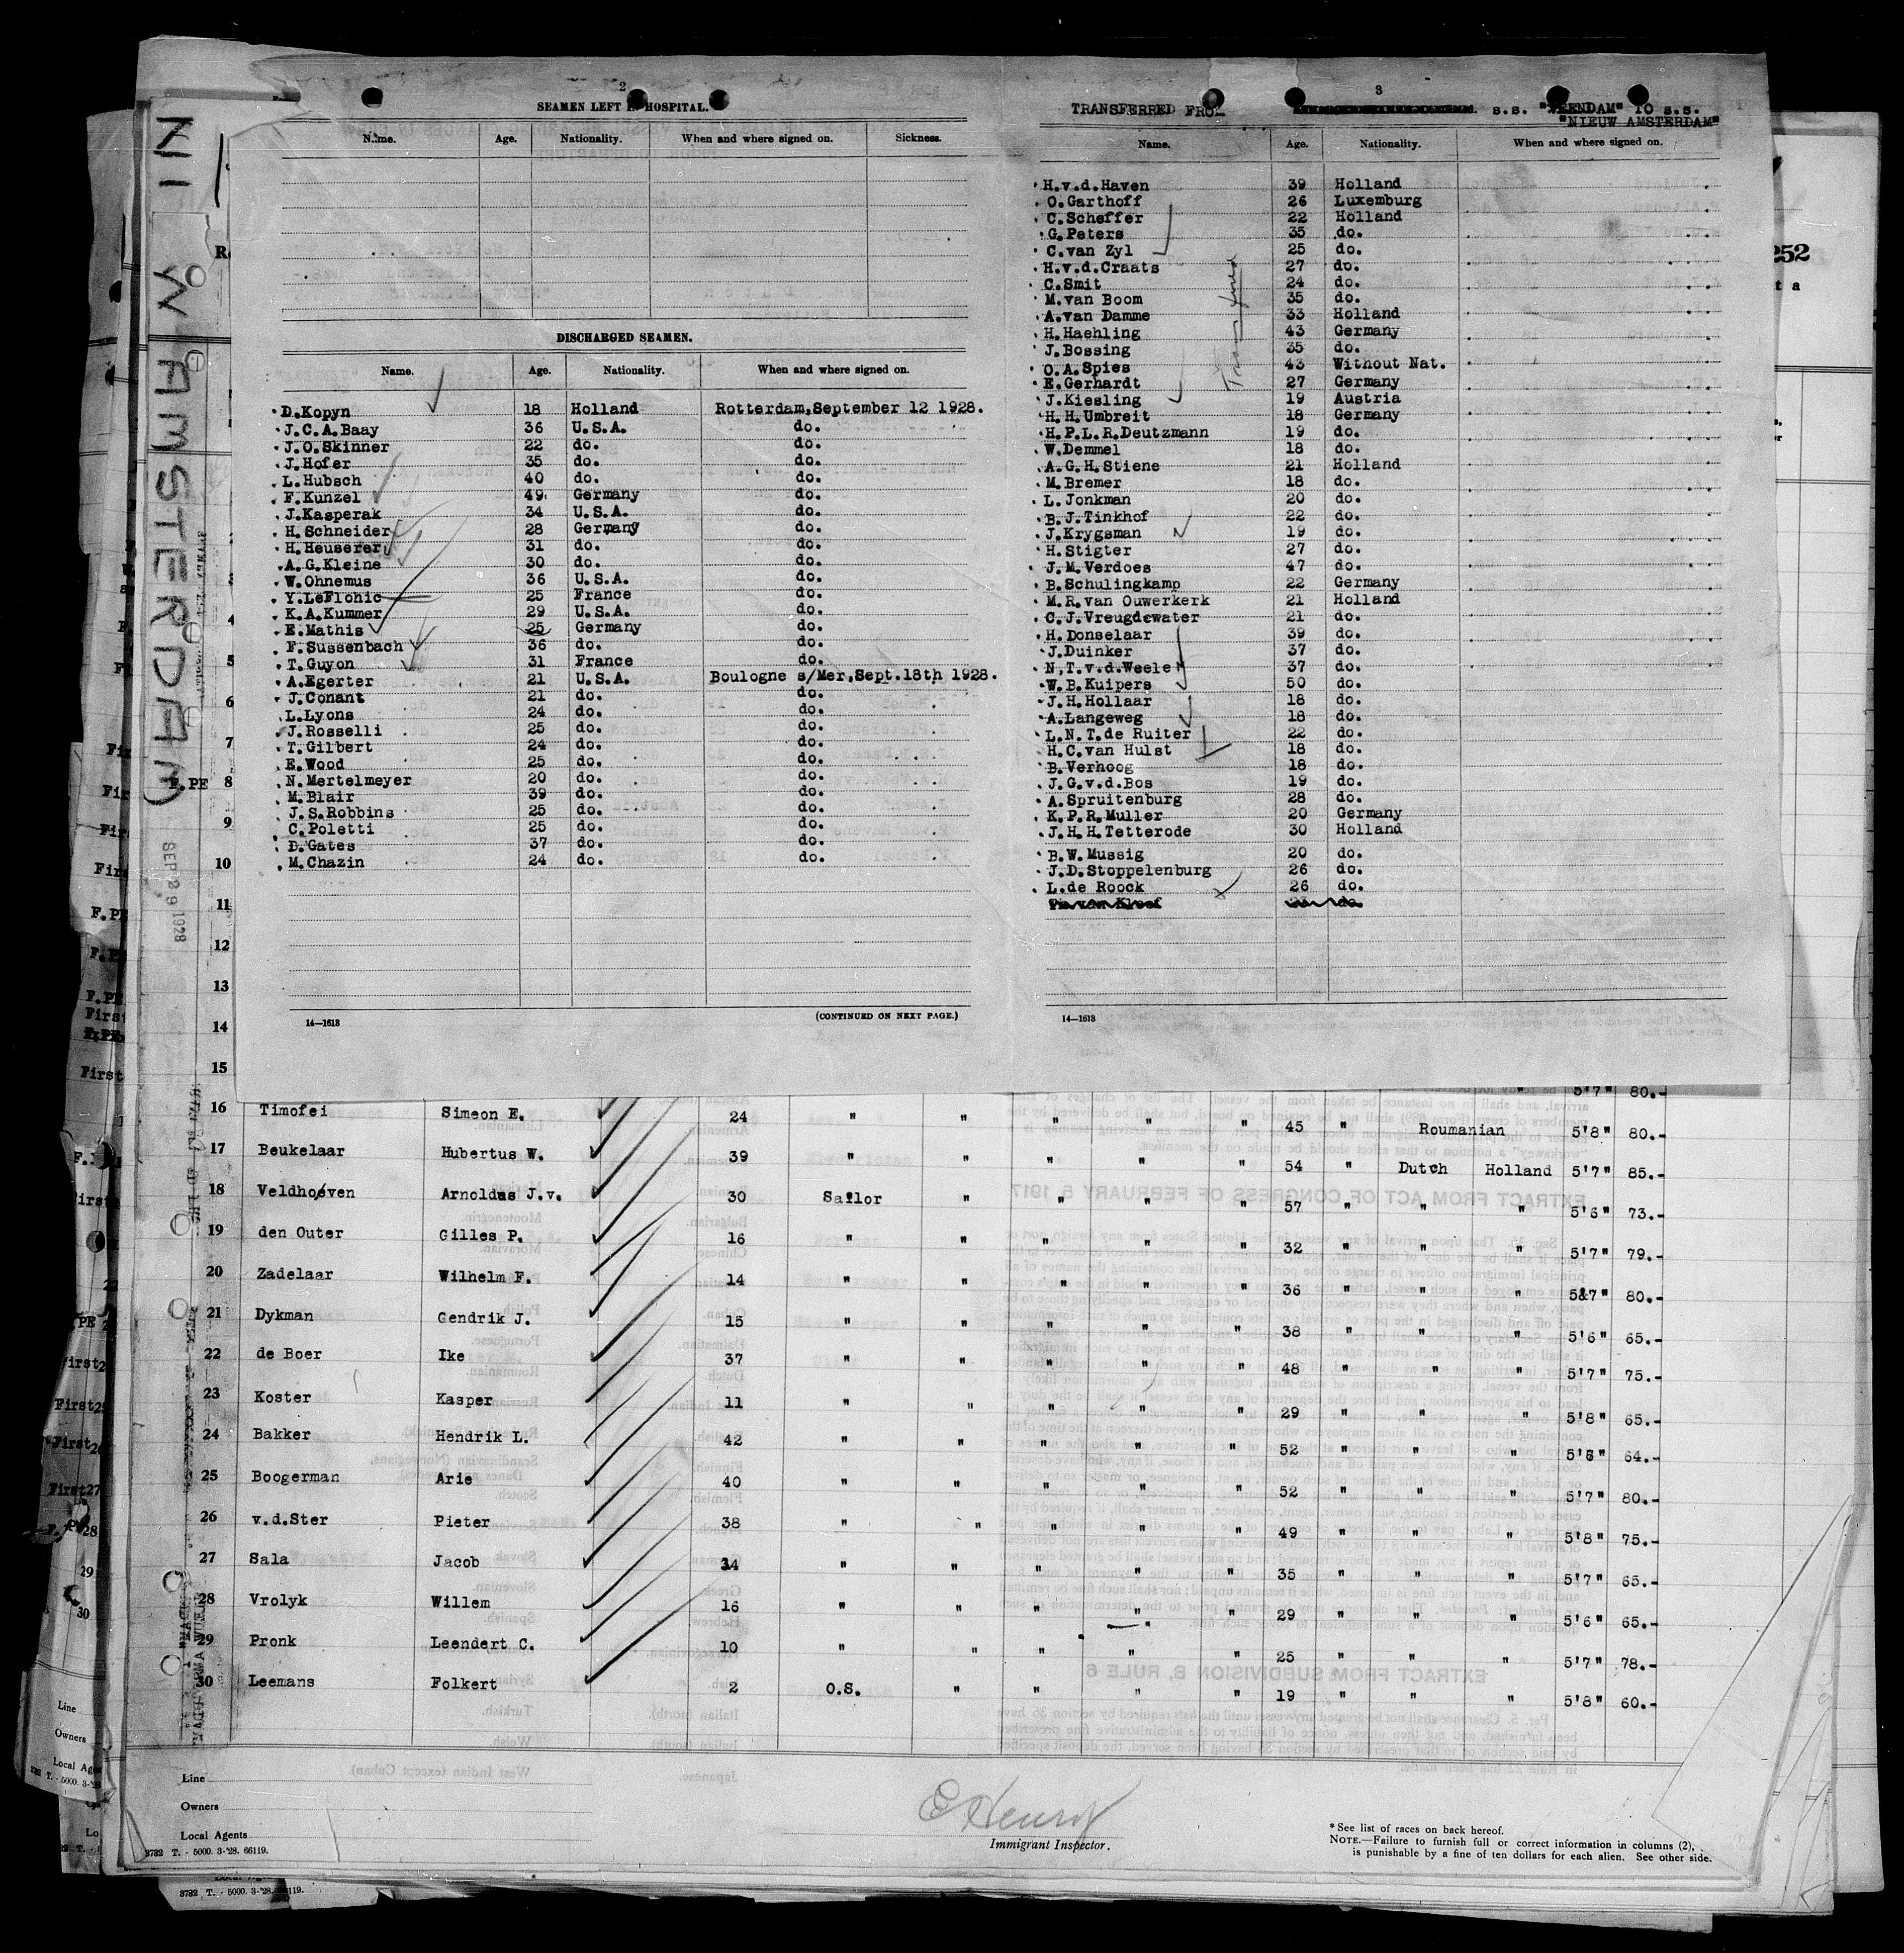 2
SEAMEN LEFT IN HOSPITAL.
Name. Age. Nationality. When and where signed on. Sickness.
DISCHARGED SEAMEN.
Name. Age. Nationality. When and where signed on.
D.Kopyn 18 Holland Rotterdam,September 12 1928.
J.C.A.Baay 36 U.S.A. do.
J.O.Skinner 22 do. do.
J.Hofer 35 do. do.
L.Hubsch 40 do. do.
F.Kunzel 49 Germany do.
J.Kasperak 34 U.S.A. do.
H.Schneider 28 Germany do.
H.Heuserer 31 do. do.
A.G.Kleine 30 do. do.
W.Ohnemus 36 U.S.A. do.
Y.LeFlohic 25 France do.
K.A.Kummer 29 U.S.A. do.
E.Mathis 25 Germany do.
F.Sussenbach 36 do. do.
T.Guyon 31 France do.
A.Egerter 21 U.S.A. Boulogne s/Mer,Sept.18th 1928.
J.Conant 21 do. do.
L.Lyons 24 do. do.
J.Rosselli 25 do. do.
T.Gilbert 24 do. do.
E.Wood 25 do. do.
N.Mertelmeyer 20 do. do.
M.Blair 39 do. do.
J.S.Robbins 25 do. do.
C.Poletti 25 do. do.
D.Gates 37 do. do.
M.Chazin 24 do. do.
14—1613 (CONTINUED ON NEXT PAGE.)
3
TRANSFERRED FROM s.s. "VEENDAM" TO s.s.
"NIEUW AMSTERDAM"
Name. Age. Nationality. When and where signed on.
H.v.d.Haven 39 Holland
O.Garthoff 26 Luxemburg
C.Scheffer 22 Holland
G.Peters 35 do.
C.van Zyl 25 do.
H.v.d.Craats 27 do.
C.Smit 24 do.
M.van Boom 35 do.
A.van Damme 33 Holland
H.Haehling 43 Germany
J.Bossing 35 do.
O.A.Spies 43 Without Nat.
E.Gerhardt 27 Germany
J.Kiesling 19 Austria
H.H.Umbreit 18 Germany
H.P.L.R.Deutzmann 19 do.
W.Demmel 18 do.
A.G.H.Stiene 21 Holland
M.Bremer 18 do.
L.Jonkman 20 do.
B.J.Tinkhof 22 do.
J.Krygsman 19 do.
H.Stigter 27 do.
J.M.Verdoes 47 do.
B.Schulingkamp 22 Germany
M.R.van Ouwerkerk 21 Holland
C.J.Vreugdewater 21 do.
H.Donselaar 39 do.
J.Duinker 37 do.
N.T.v.d.Weele 37 do.
W.B.Kuipers 50 do.
J.H.Hollaar 18 do.
A.Langeweg 18 do.
L.N.T.de Ruiter 22 do.
H.C.van Hulst 18 do.
B.Verhoog 18 do.
J.G.v.d.Bos 19 do.
A.Spruitenburg 28 do.
K.P.R.Muller 20 Germany
J.H.H.Tetterode 30 Holland
B.W.Mussig 20 do.
J.D.Stoppelenburg 26 do.
L.de Roock 26 do.
14—1613
NIEUW AMSTERDAM
SEP 29 1928
252
5
6
7
F.PE 8
9
10
11
12
13
14
15 5'7" 80.-
16 Timofei Simeon E. 24 " " " " " 45 " Roumanian 5'8" 80.-
17 Beukelaar Hubertus W. 39 " " " " " 54 " Dutch Holland 5'7" 85.-
18 Veldhoeven Arnoldus J.v. 30 Sailor " " " " 57 " " " 5'6" 73.-
19 den Outer Gilles P. 16 " " " " " 32 " " " 5'7" 79.-
20 Zadelaar Wilhelm F. 14 " " " " " 36 " " " 5&7" 80.-
21 Dykman Gendrik J. 15 " " " " " 38 " " " 5'6" 65.-
22 de Boer Ike 37 " " " " " 48 " " " 5'7" 75.-
23 Koster Kasper 11 " " " " " 29 " " " 5'8" 65.-
24 Bakker Hendrik L. 42 " " " " " 52 " " " 5'6" 64.-
25 Boogerman Arie 40 " " " " " 52 " " " 5'7" 80.-
26 v.d.Ster Pieter 38 " " " " " 49 " " " 5'8" 75.-
27 Sala Jacob 14 " " " " " 35 " " " 5'7" 65.-
28 Vrolyk Willem 16 " " " " " 29 " " " 5'6" 65.-
29 Pronk Leendert C. 10 " " " " " 25 " " " 5'7" 78.-
30 Leemans Folkert 2 O.S. " " " " 19 " " " 5'8" 60.-
Line
Owners
Local Agents
3732 T. - 5000. 3-'28. 66119.
Immigrant Inspector.
* See list of races on back hereof.
NOTE.—Failure to furnish full or correct information in columns (2),
is punishable by a fine of ten dollars for each alien. See other side.
3732 T. - 5000. 3-'28. 66119.